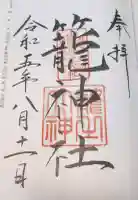 奉拝
籠神社
令和五年八月十一日